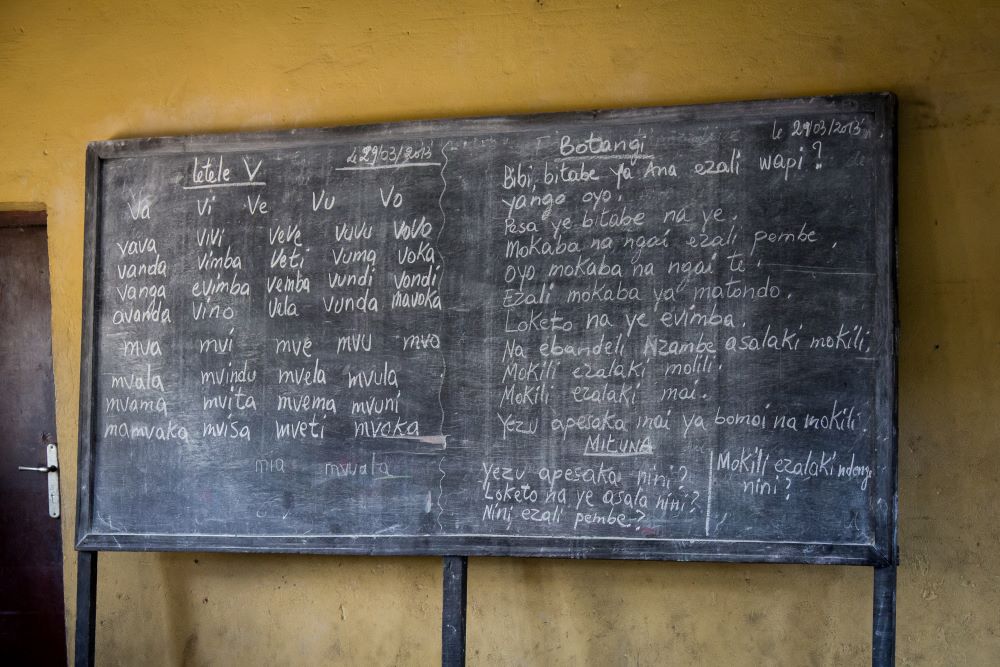 letele V
Le 29/03/2013
Va Vi Ve Vu Vo
vava vivi veve vuvu vovo
vanda vimba veti vuma voka
vanga evimba vemba vundi vondi
avanda vino vela vunda mavoka
mva mvi mve mvu mvo
mvala mvindu mvela mvula
mvama mvita mvema mvuni
mamvaka mvisa mveti mvoka
mia mvuala
Botangi
le 29/03/2013
Bibi, bitabe ya Ana ezali wapi ?
yango oyo.
Pesa ye bitabe na ye.
Mokaba na ngai ezali pembe.
Oyo mokaba na ngai te.
Ezali mokaba ya matondo.
Loketo na ye evimba.
Na ebandeli Nzambe asalaki mokili.
Mokili ezalaki molili.
Mokili ezalaki mai.
Yezu apesaka mai ya bomoi na mokili.
MITUNA
Yezu apesaka nini?
Loketo na ye asala nini?
Nini ezali pembe?
Mokili ezalaki ndenge
nini?